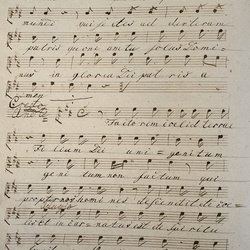 mundi qui sedes ad dexteram
patris quoni am tu solus Domi=
nus in gloria Dei pat ris a
men
Credo
Factorem coeli et terrae
Fi lium Dei uni = genitum
geni tum non factum qui
propter nos homines descendit de coe=
lis et in car= natus est de Spi ritu